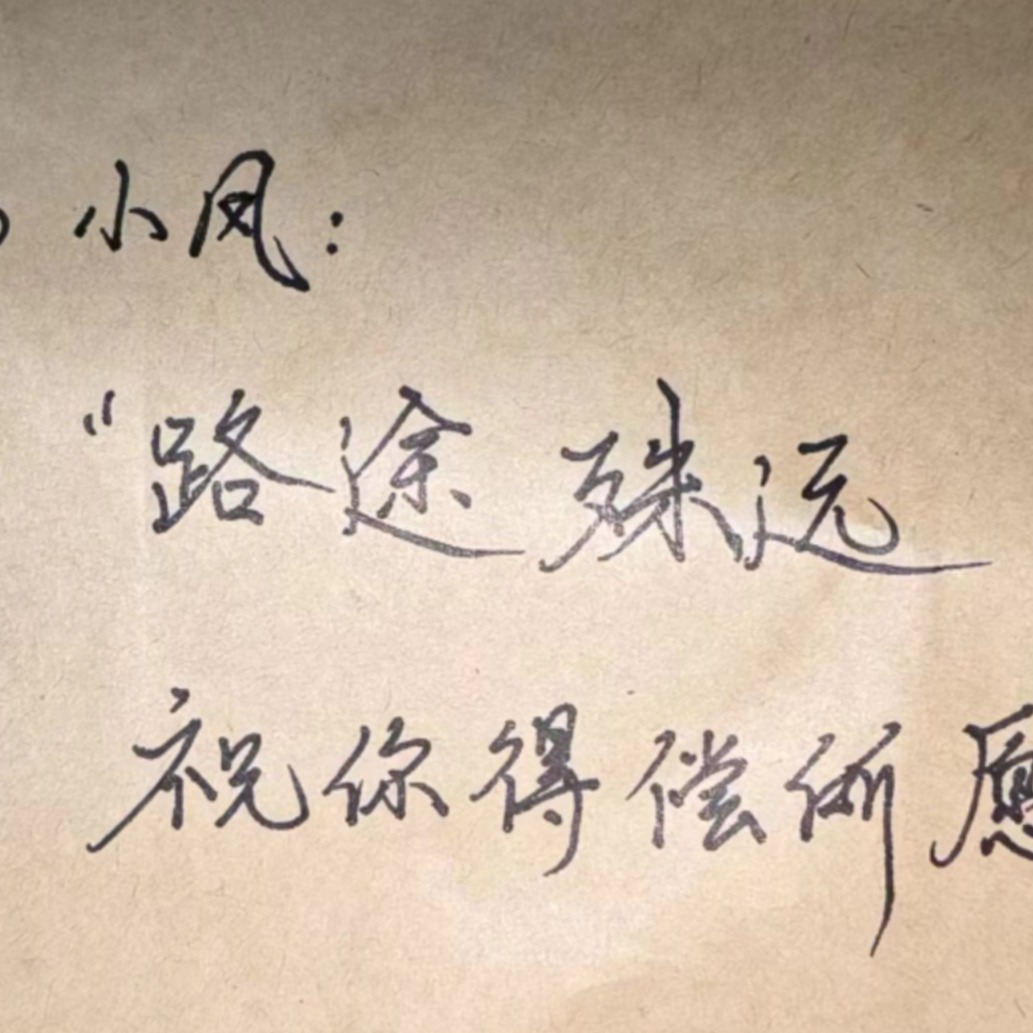 小凤:
“路途殊远
祝你得偿所愿